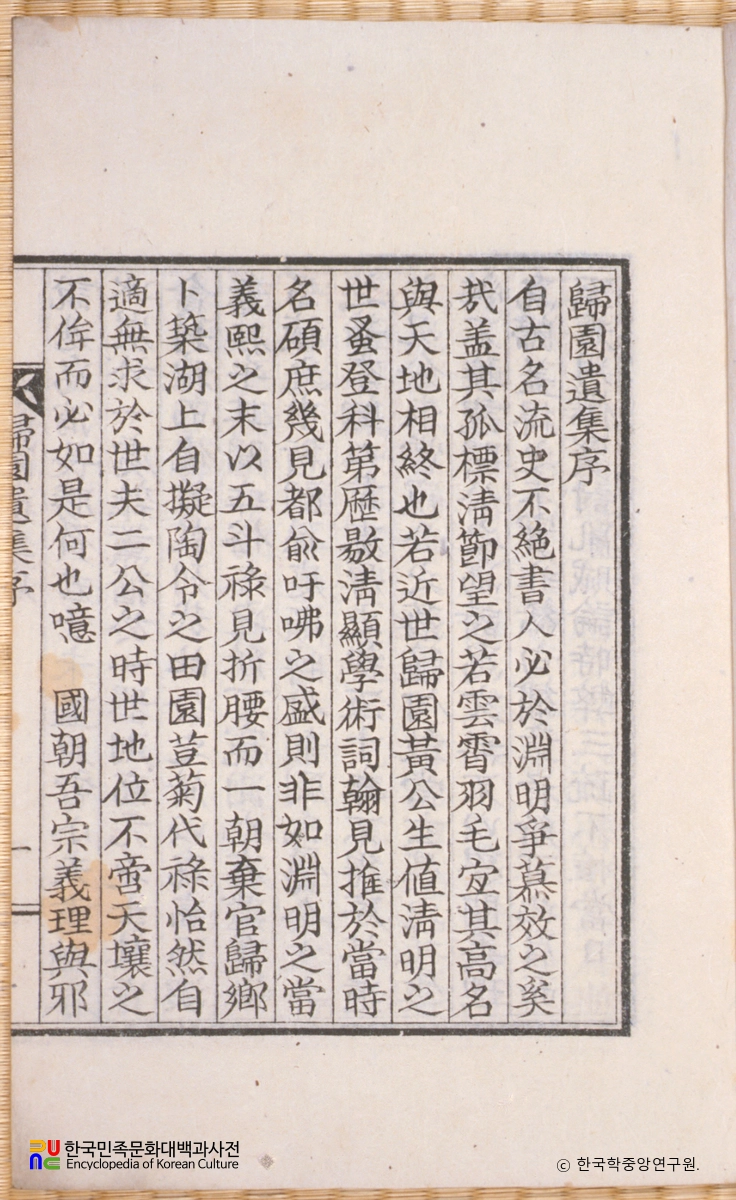 歸園遺集序
自古名流史不絶書人必於淵明爭慕效之奚
㢤盖其孤標淸節望之若雲霄羽毛宜其高名
與天地相終也若近世歸園黃公生値淸明之
世蚤登科第歷敭淸顯學術詞翰見推於當時
名碩庶幾見都兪吁咈之盛則非如淵明之當
義熙之末以五斗祿見折腰而一朝棄官歸鄉
卜築湖上自擬陶令之田園荳菊代祿怡然自
適無求於世夫二公之時世地位不啻天壤之
不侔而必如是何也噫 國朝吾宗義理與邪
歸園遺集序
一
한국민족문화대백과사전
Encyclopedia of Korean Culture
© 한국학중앙연구원.